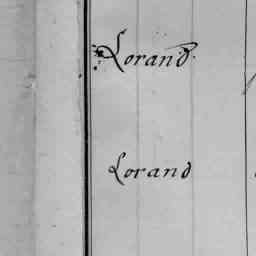 Lorand
Lorand